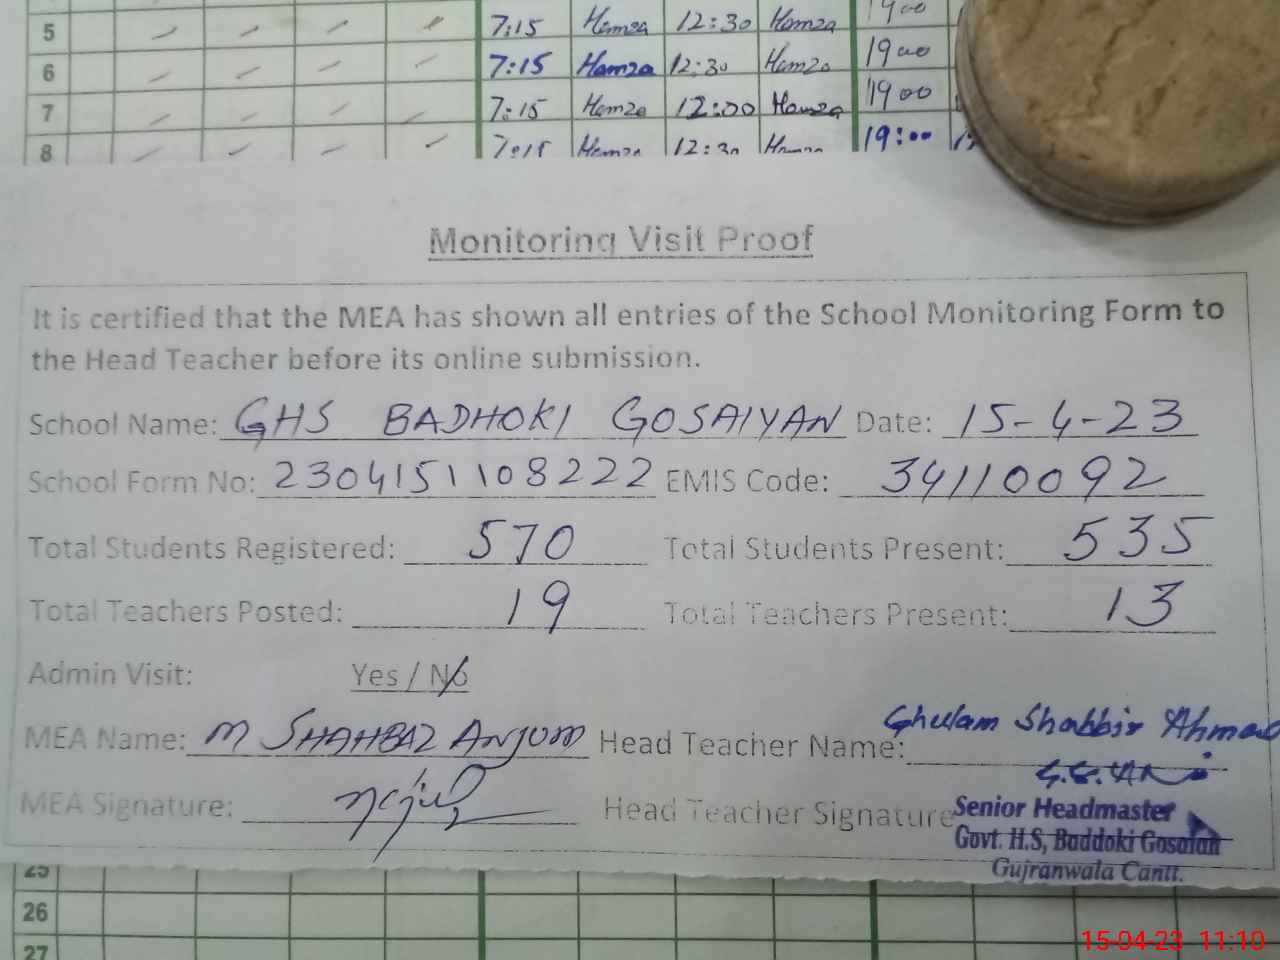 5 7:15 Hamza 12:30 Hamza 1900
6 7:15 Hamza 12:30 Hamza 1900
7 7:15 Hamza 12:00 Hamza 1900
8 7:15 Hamza 12:30 Hamza 19:00
Monitoring Visit Proof
It is certified that the MEA has shown all entries of the School Monitoring Form to
the Head Teacher before its online submission.
School Name: GHS BADHOKI GOSAIYAN Date: 15-4-23
School Form No: 2304151108222 EMIS Code: 34110092
Total Students Registered: 570 Total Students Present: 535
Total Teachers Posted: 19 Total Teachers Present: 13
Admin Visit: Yes / No
MEA Name: M SHAHBAZ ANJUM Head Teacher Name: Ghulam Shabbir Ahmad
MEA Signature: Head Teacher Signature
Senior Headmaster
Govt. H.S, Baddoki Gosaian
Gujranwala Cantt.
25
26
27
15-04-23 11:10